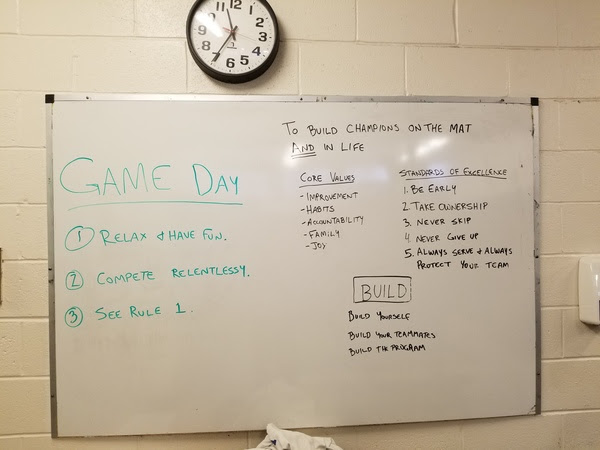 12
11
1
10
2
9
3
8
4
7
6
5
GAME DAY
① RELAX & HAVE FUN.
② COMPETE RELENTLESSY.
③ SEE RULE 1.
TO BUILD CHAMPIONS ON THE MAT
AND IN LIFE
CORE VALUES
- IMPROVEMENT
- HABITS
- ACCOUNTABILITY
- FAMILY
- JOY
STANDARDS OF EXCELLENCE
1. BE EARLY
2. TAKE OWNERSHIP
3. NEVER SKIP
4. NEVER GIVE UP
5. ALWAYS SERVE & ALWAYS
PROTECT YOUR TEAM
BUILD
BUILD YOURSELF
BUILD YOUR TEAMMATES
BUILD THE PROGRAM